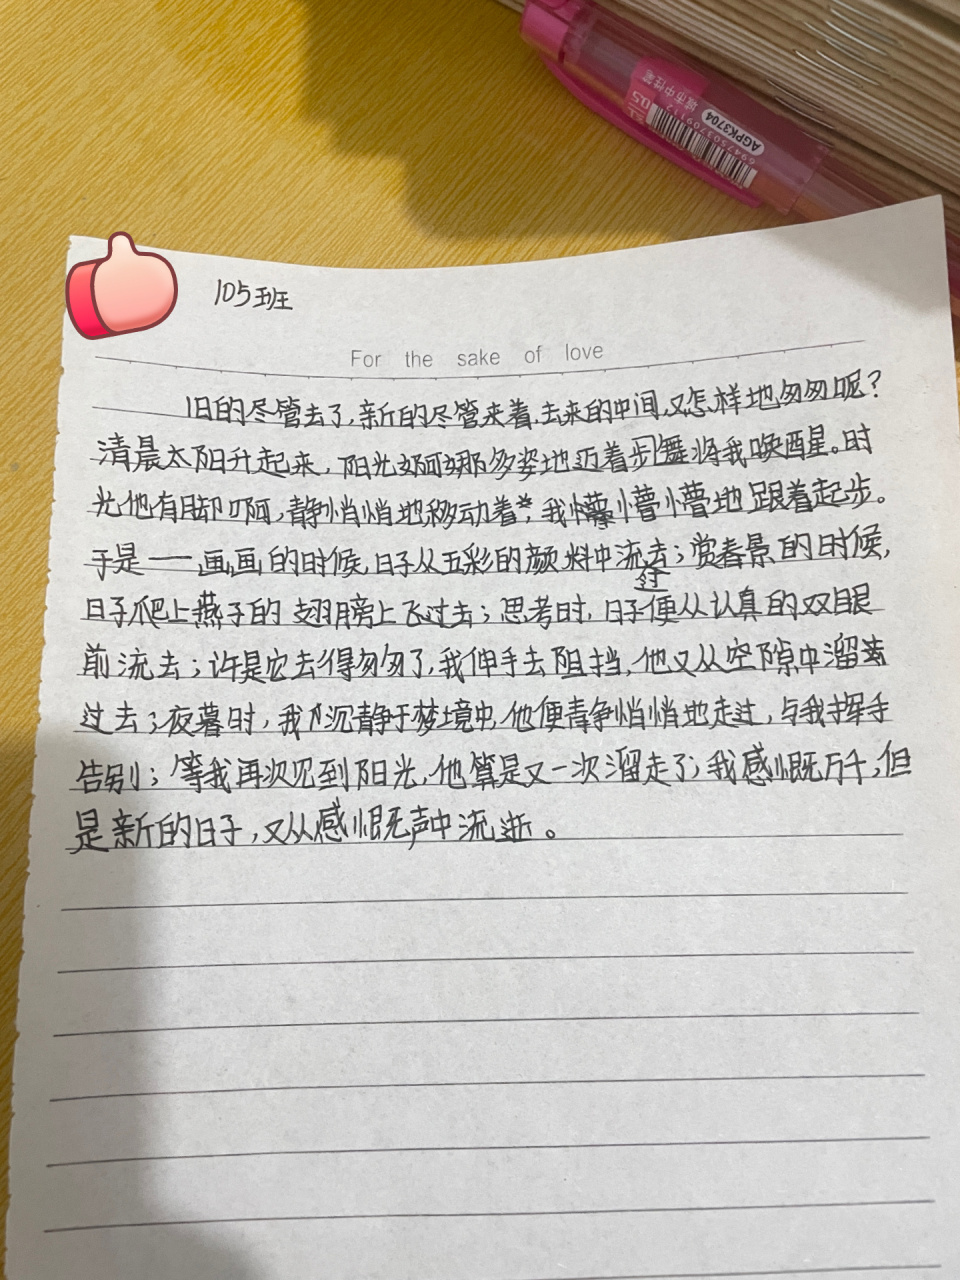 城市中性笔
0.5
AGPK3704
6947503709112
105班
For the sake of love
旧的尽管去了,新的尽管来着,去来的中间,又怎样地匆匆呢?
清晨太阳升起来,阳光婀娜多姿地迈着步舞将我唤醒。时
光他有脚啊,静悄悄地移动着,我懵懵懂地跟着起步。
于是——画画的时候,日子从五彩的颜料中流去;赏春景的时候,
日子爬上燕子的翅膀上飞过去;思考时,日子便从认真的双眼
前流过去;许是它去得匆匆了,我伸手去阻挡,他又从空隙中溜
过去;夜暮时,我沉静于梦境中,他便静悄悄地走过,与我挥手
告别;等我再次见到阳光,他算是又一次溜走了;我感慨万千,但
是新的日子,又从感慨声中流逝。